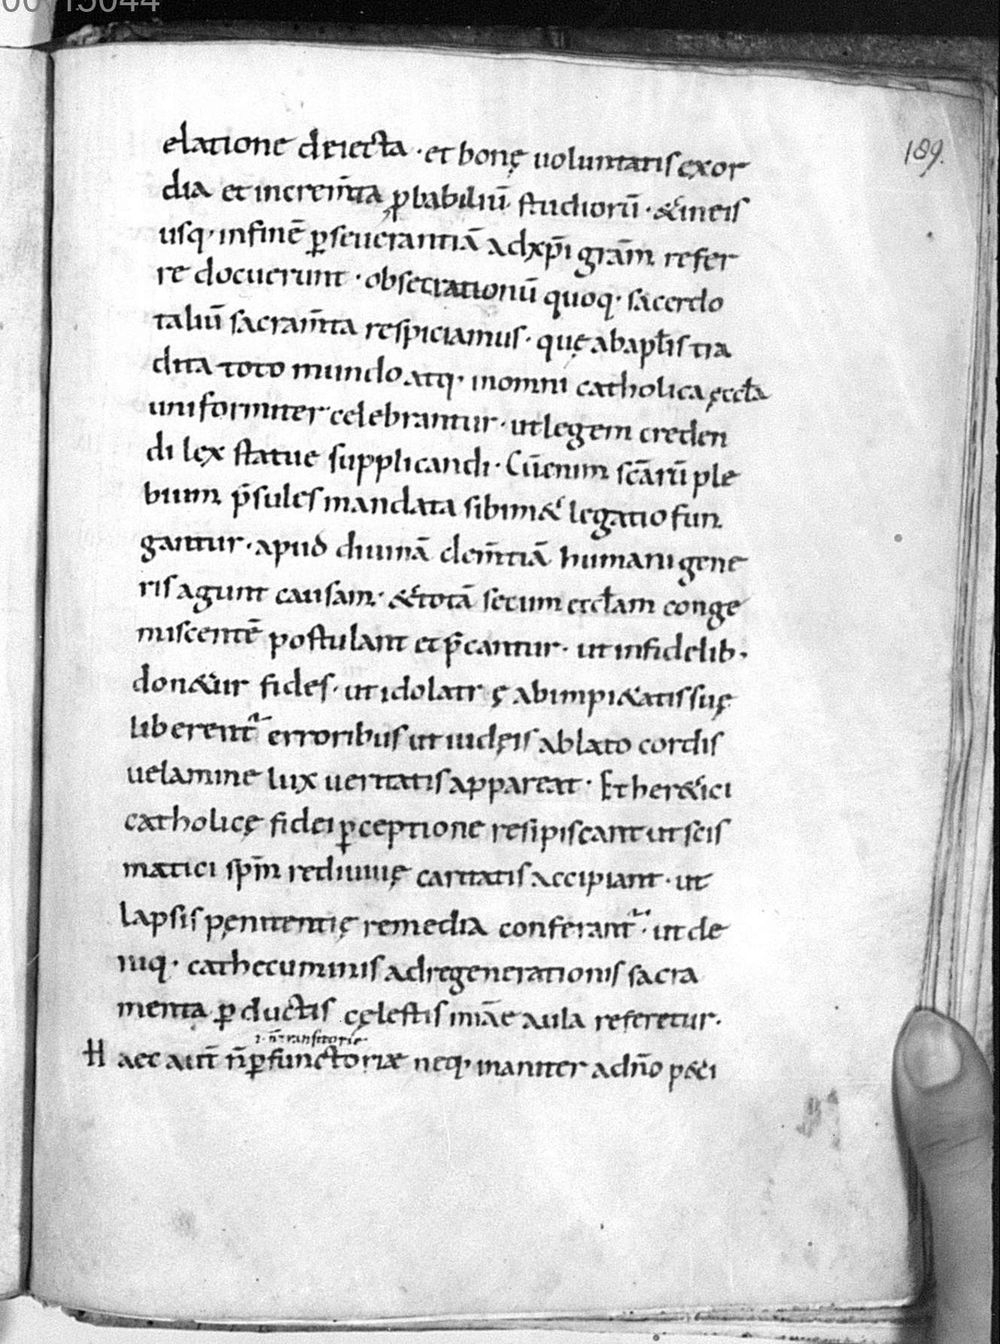 00015044
189.
elatione deiecta · et bonę uoluntatis exor
dia et increm̄ta ꝓbabiliū studiorū · &ineis
usq· infinē ꝑseuerantiā adxp̄i grām refer
re docuerunt · obsecrationū quoq· sacerdo
taliū sacram̄ta respiciamus · quę abapłis tra
dita toto mundo atq· inomni catholica ęccła
uniformiter celebrantur · utlegem creden
di lex statue supplicandi · Cū enim scārū ple
bium p̄sules mandata sibim& legatio fun
gantur · apud diuinā clem̄tiā humani gene
ris agunt causam · &totā secum ecclam conge
miscentē postulant et p̄cantur · ut infidelib·
don&ur fides · ut idolatrę abimpi&atis suę
liberent᷑ erroribus ut iudęis ablato cordis
uelamine lux ueritatis appareat · Et her&ici
catholicę fidei ꝑceptione resipiscant ut scis
matici spm̄ rediuiuę caritatis accipiant · ut
lapsis pęnitentię remedia conferant᷑ · ut de
niq· cathecuminis adregenerationis sacra
menta ꝑductis cęlestis mīae aula referetur ·
.i. n̄ transitorie
Haec aut̄ n̄ ꝑfunctoriæ neq· inaniter adn̄o p&i